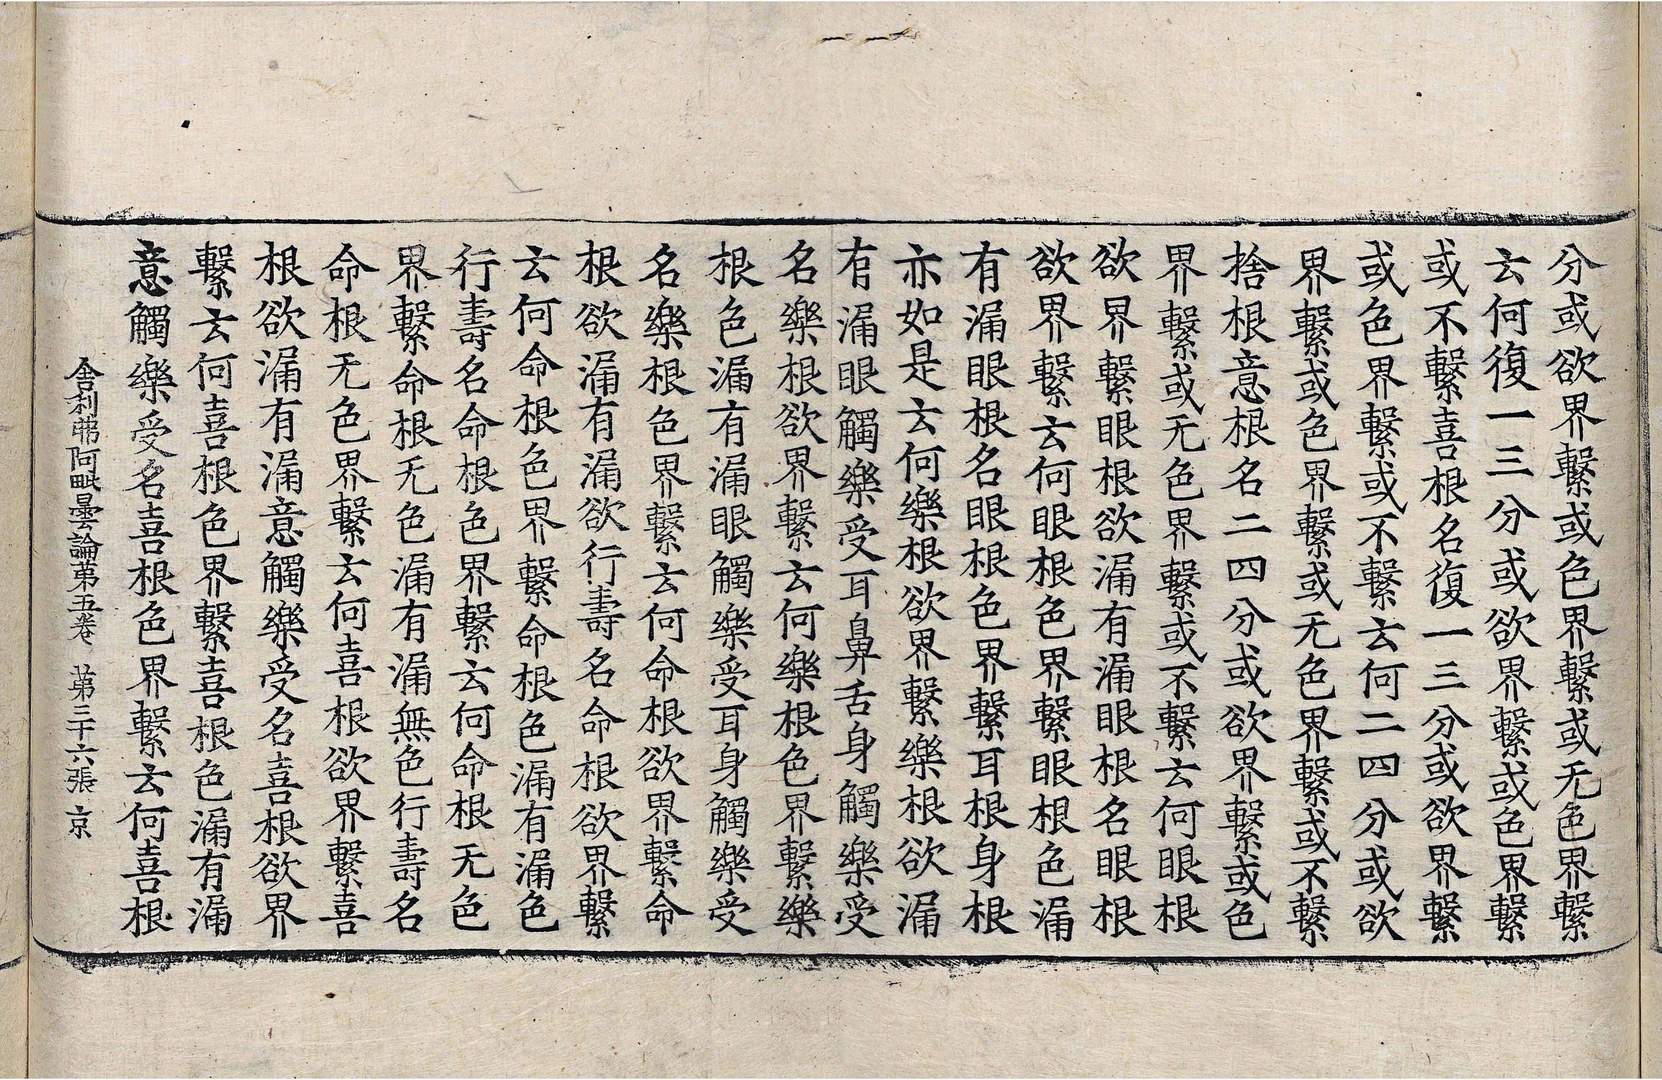 分或欲界繫或色界繫或无色界繫
云何復一三分或欲界繫或色界繫
或不繫喜根名復一三分或欲界繫
或色界繫或不繫云何二四分或欲
界繫或色界繫或无色界繫或不繫
捨根意根名二四分或欲界繫或色
界繫或无色界繫或不繫云何眼根
欲界繫眼根欲漏有漏眼根名眼根
欲界繫云何眼根色界繫眼根色漏
有漏眼根名眼根色界繫耳根身根
亦如是云何樂根欲界繫樂根欲漏
有漏眼觸樂受耳鼻舌身觸樂受
名樂根欲界繫云何樂根色界繫樂
根色漏有漏眼觸樂受耳身觸樂受
名樂根色界繫云何命根欲界繫命
根欲漏有漏欲行壽名命根欲界繫
云何命根色界繫命根色漏有漏色
行壽名命根色界繫云何命根无色
界繫命根无色漏有漏無色行壽名
命根无色界繫云何喜根欲界繫喜
根欲漏有漏意觸樂受名喜根欲界
繫云何喜根色界繫喜根色漏有漏
意觸樂受名喜根色界繫云何喜根
舍利弗阿毗曇論第五卷 第三十六張 京